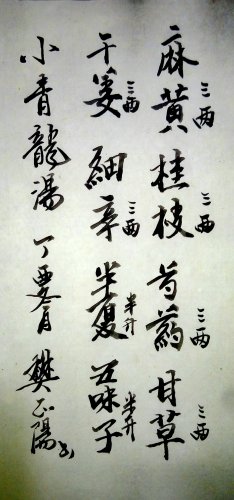 麻黄三两桂枝三两芍藥三两甘草三两
干姜三两細辛三两半夏半升五味子半升
小青龍湯丁酉夏月樊正陽书